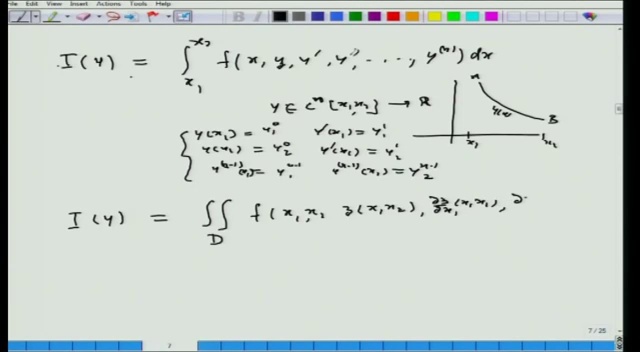 File Edit View Insert Actions Tools Help
I(y) = ∫_{x_1}^{x_2} f(x, y, y', y'', ...., y^{(n)}) dx
y ∈ C^n [x_1, x_2] → R
A B y(x) x_1 x_2
y(x_1) = y_1^0 y'(x_1) = y_1^1
y(x_2) = y_2^0 y'(x_2) = y_2^1
y^{(n-1)}(x_1) = y_1^{n-1} y^{(n-1)}(x_2) = y_2^{n-1}
I(y) = ∬_D f(x_1, x_2 z(x_1, x_2), ∂z/∂x_1 (x_1, x_2), ∂
7 / 25
7